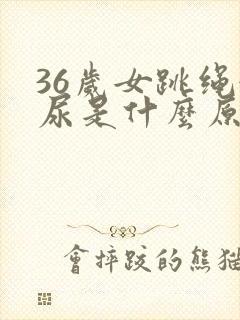 36歲女跳绳
尿是什麼原
會摔跤的熊猫